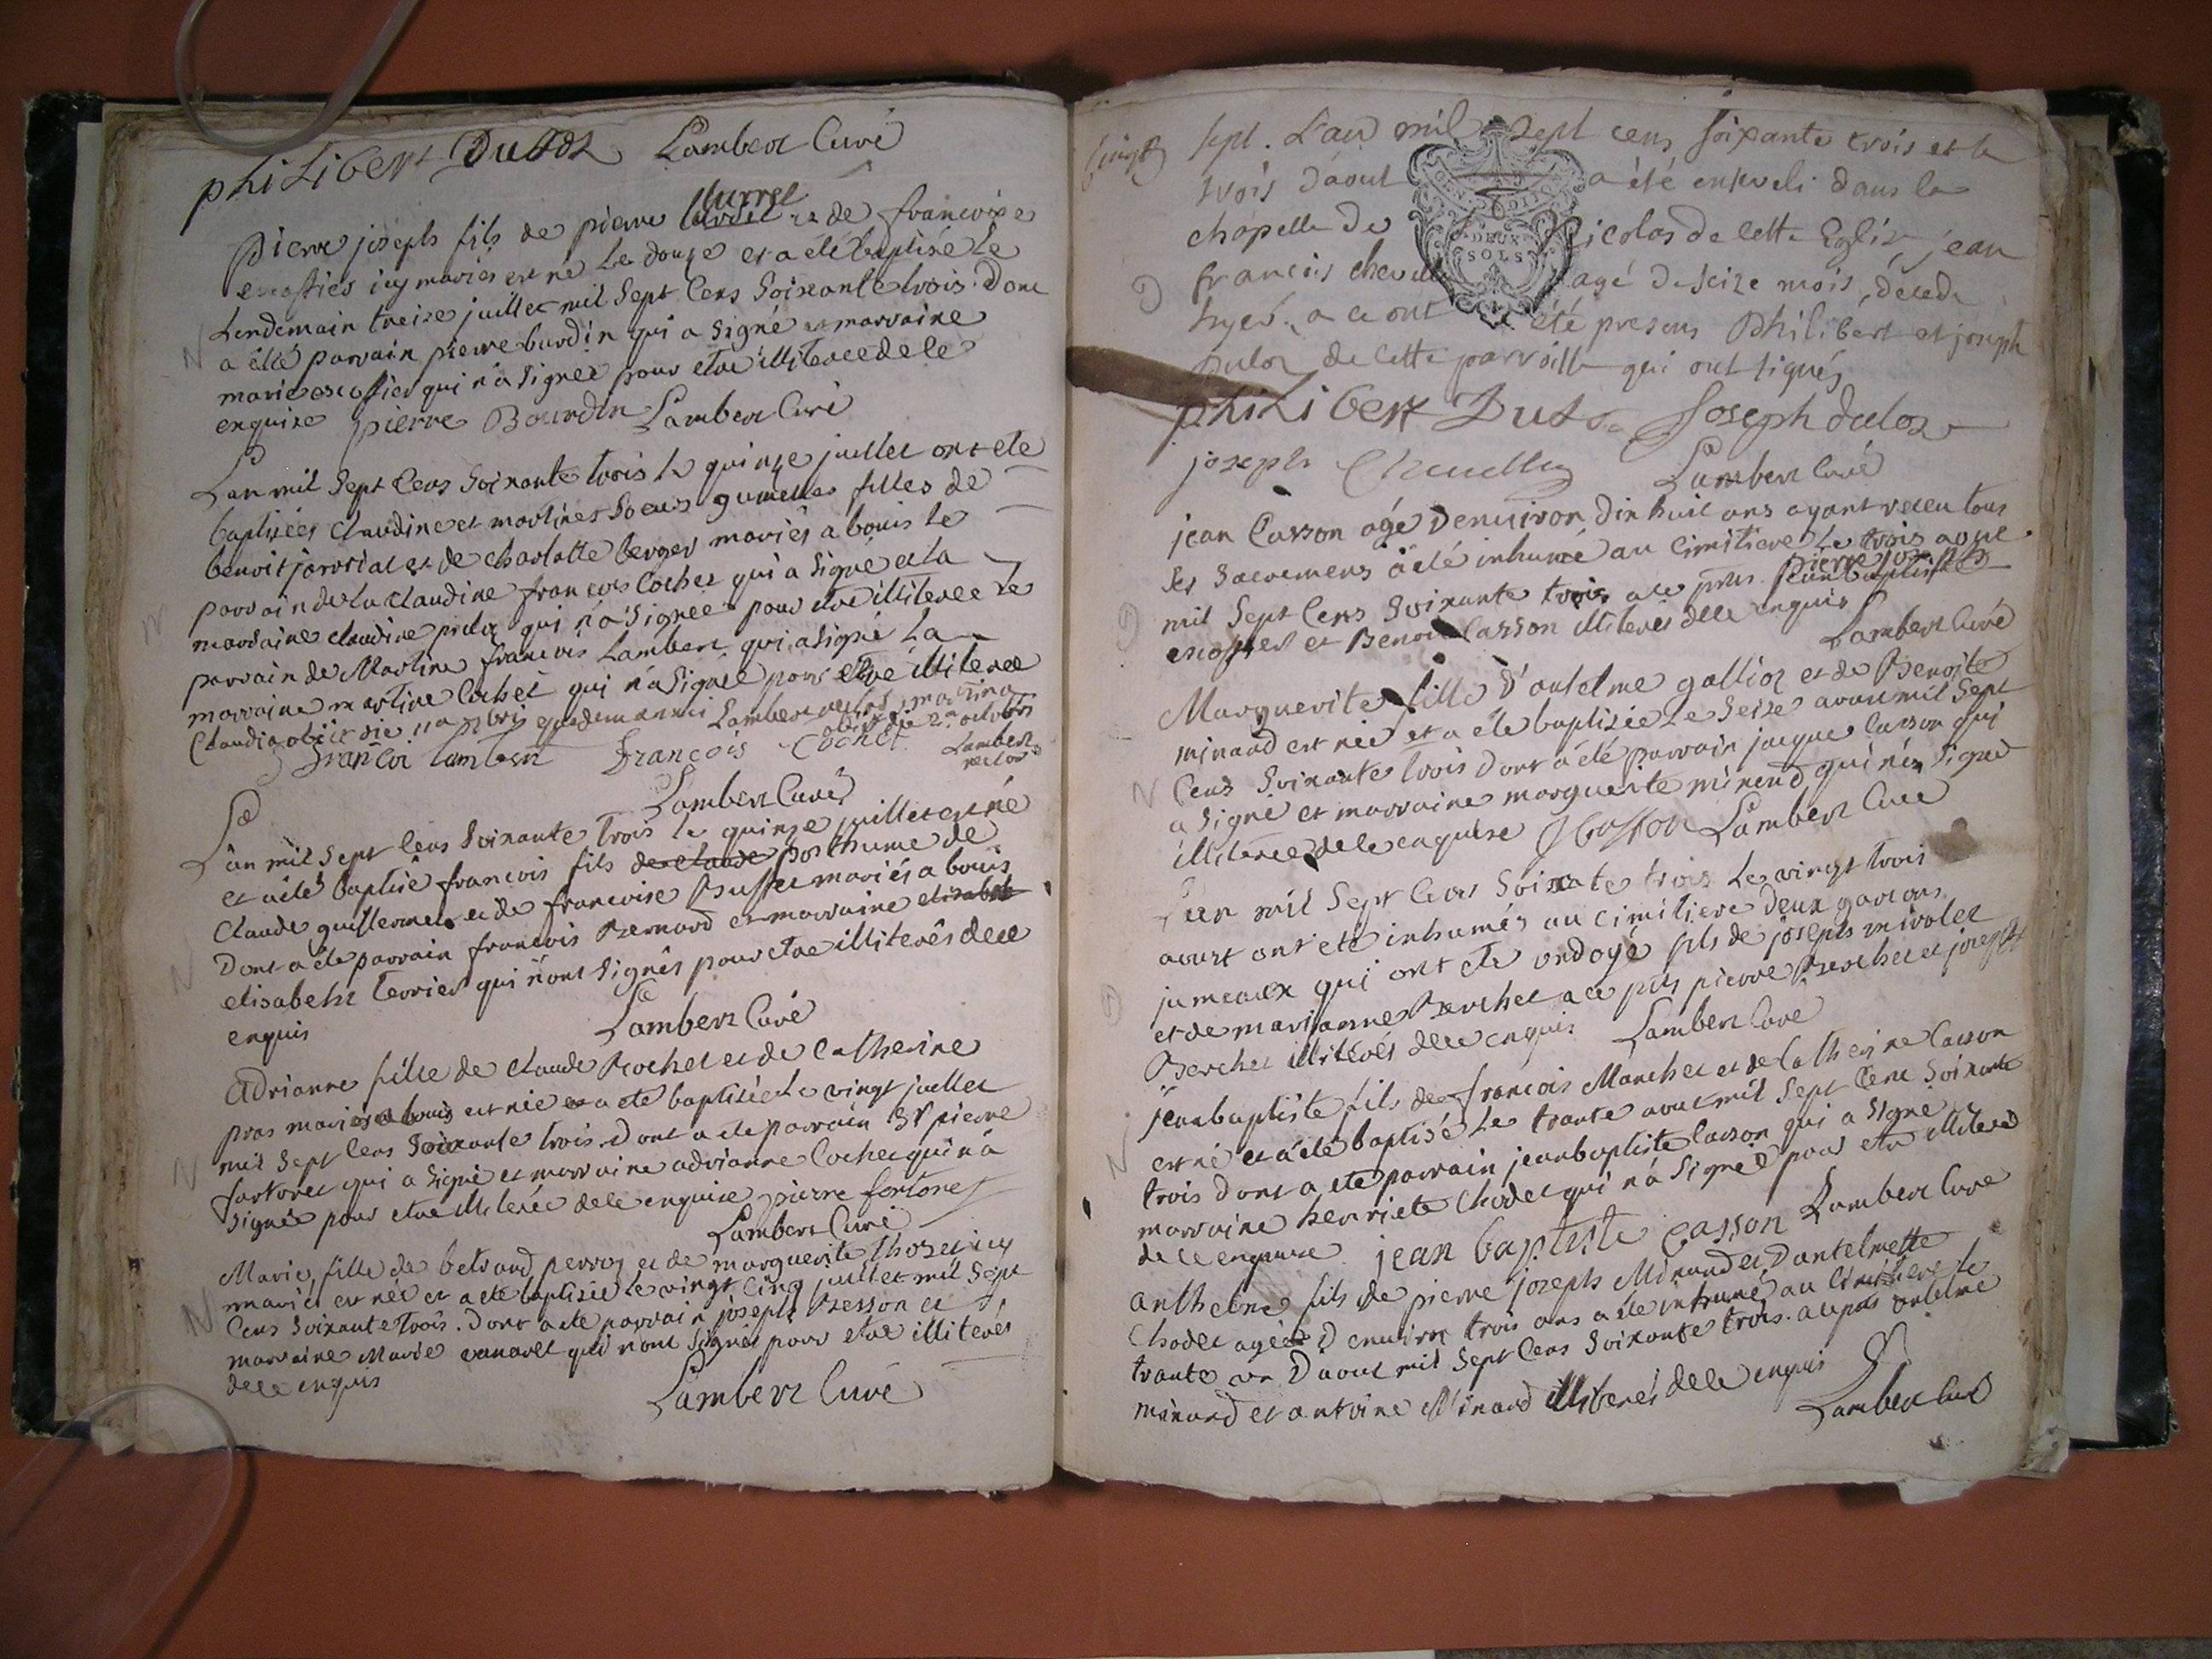 philibert Duloz Lambert Curé
murret
pierre joseph fils de pierre et de francoise
escoffier icy mariés est né le douze et a été baptisé le
Lendemain treize juillet mil Sept Cens Soixante trois. Dont
a été parrain pierre burdin qui a signé et marraine
marie escoffier qui n'a signée pour etre illiteree de ce
enquise pierre Bourdin Lambert Curé
Lan mil Sept Cens Soixante trois le quinze juillet ont ete
baptisées Claudine et martine Soeurs gumelles filles de
benoit et de charlotte berger mariés a bouis le
parrain de la claudine francois Cochet qui a signé et la
marraine claudine qui n'a signée pour etre illiteree le
parrain de Martine francois Lambert qui a signé La
marraine martine Cochet qui n'a signée pour etre illiteree
Claudia obiit die 11a 7bris ejusdem anni Lambert rector martina
obiit die 2a octobris
francoi lambert francois Cochet Lambert
rector
Lambert Curé
L'an mil Sept Cens Soixante trois le quinze juillet est né
et a été baptisé francois fils de claude posthume de
Claude guillermet et de francoise Buffet mariés a bouis
Dont a été parrain francois Bernard et marraine elisabet
elisabeht terrier qui n'ont signés pour etre illiterés de ce
enquis Lambert Curé
Adrianne fille de claude Rochet et de Catherine
pras mariés a bouis est née et a été baptisée le vingt juillet
mil Sept Cens Soixante trois. Dont a ete parrain Sr pierre
fortoret qui a signé et marraine adrianne Cochet qui n'a
signée pour etre illiterée de ce enquise pierre fortoret
Lambert Curé
Marie, fille de betrand perroz et de marguerite thozet icy
mariés est née et a ete baptisée le vingt cinq juillet mil Sept
Cens Soixante trois. Dont a ete parrain joseph Besson et
marraine Marie qui n'ont signés pour etre illiterés
de ce enquis Lambert Curé
vingt sept. L'an mil sept cens soixante trois et le
trois d'aout a été enseveli dans la
chapelle de Nicolas de cette Eglise, jean
francois agé de seize mois, décédé
hyer. a ce ont été presens Philibert et joseph
Duloz de cette parroisse qui ont signés
DEUX
SOLS
philibert Duloz Joseph duloz
joseph Lambert Curé
jean Casson agé Denviron Dix huit ans ayant receu tous
Ses Sacremens a été inhumé au Cimitiere le trois aout
pierre joseph
mil Sept Cens Soixante trois a ce pnts jean baptiste
escoffier et Benoit Casson illiterés de ce enquis
Lambert Curé
Marguerite fille d'antelme gallioz et de Benoite
minaud est née et a ete baptisée le Seize aoust mil Sept
Cens Soixante trois dont a été parrain jacque Casson qui
a signé et marraine marguerite minaud qui n'a signée
illiterée de ce enquise J Casson Lambert Curé
L'an mil Sept Cens Soixante trois Le vingt trois
aoust ont ete inhumés au cimitiere Deux garcons
jumeaux qui ont ete ondoyé fils de joseph mivolet
et de marianne Berchet a ce pnts pierre Berchet et joseph
Berchet illiterés de ce enquis Lambert Curé
jean baptiste fils de francois Marchet et de Catherine Casson
est né et a été baptisé le trante aout mil Sept Cens Soixante
trois dont a été parrain jean baptiste Casson qui a signé
marraine henriete Chodet qui n'a signée pour etre illiteré
de ce enquise jean baptiste Casson Lambert Curé
anthelme fils de pierre joseph Minaud et D'antelmette
Chodet agée Denviron trois ans a été inhumé au Cimitiere le
trante un D'aout mil Sept Cens Soixante trois. a ce pnts antelme
minaud et antoine Minaud illiterés de ce enquis
Lambert Curé